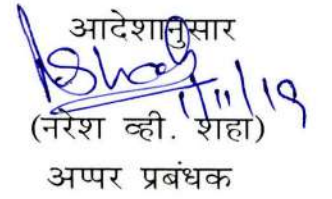 आदेशानुसार
1/11/19
(नरेश व्ही. शहा)
अप्पर प्रबंधक